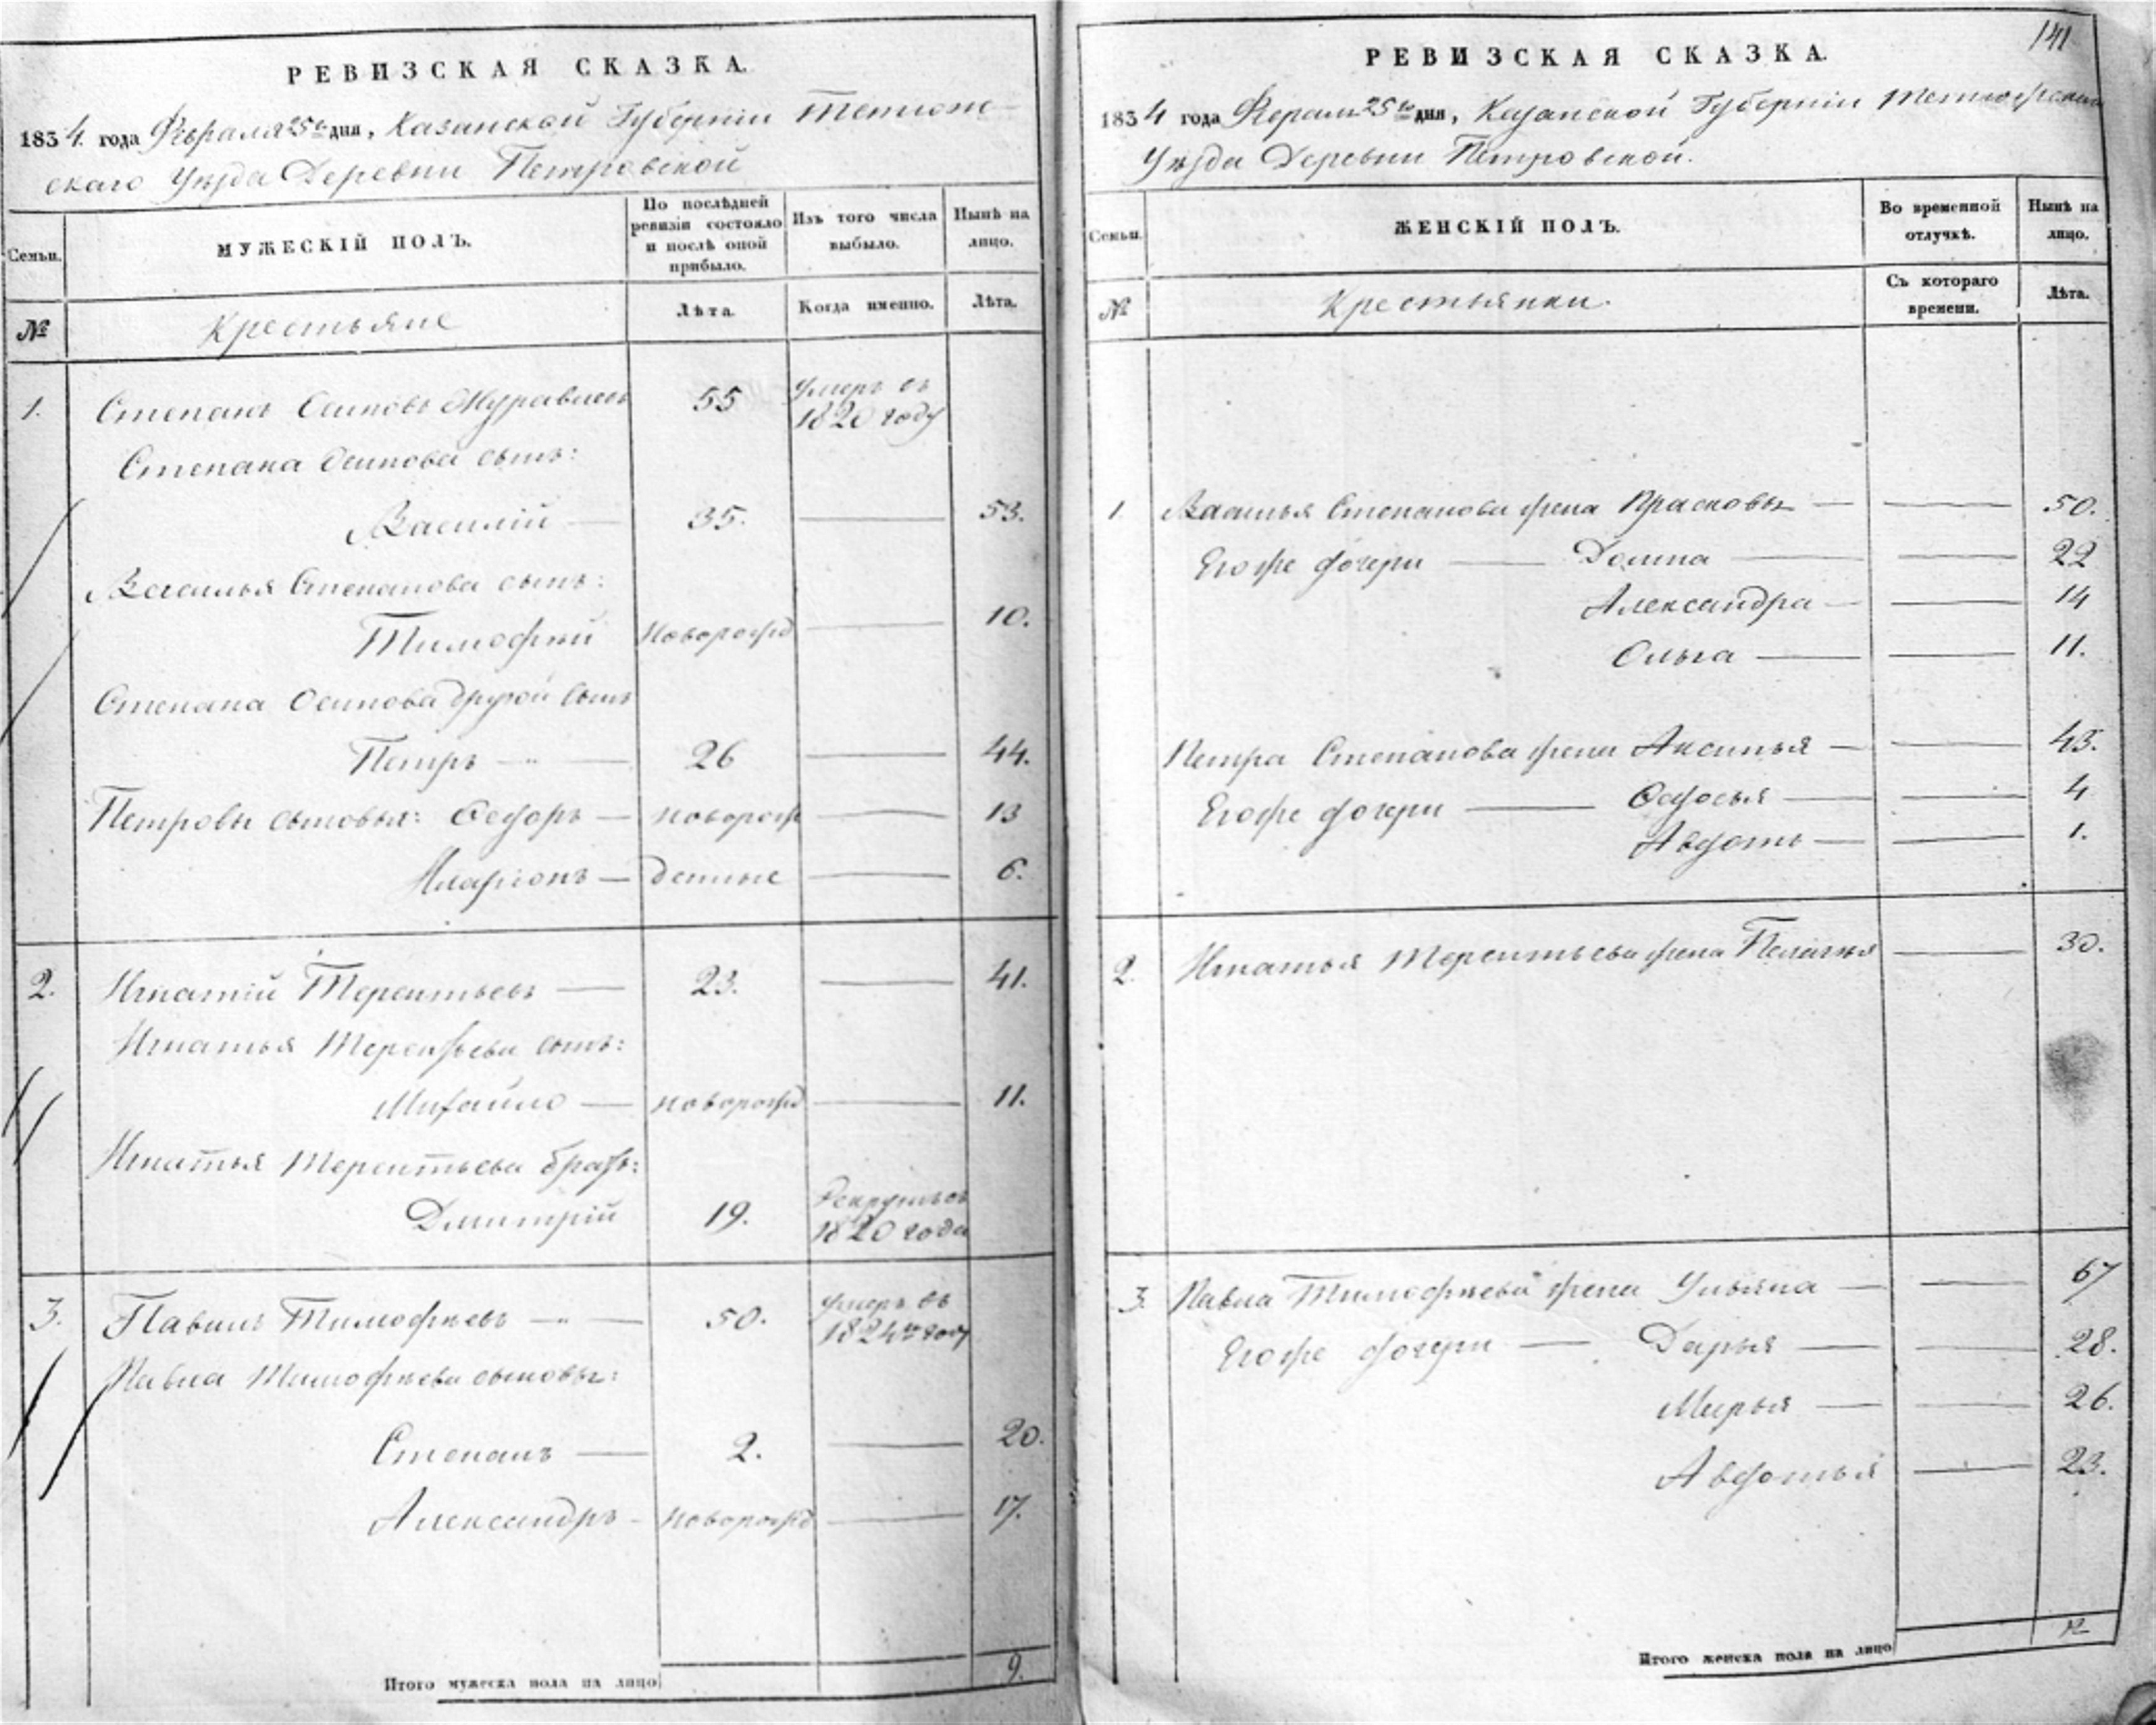 РЕВИЗСКАЯ СКАЗКА.
1834. года Февраля 25го дня, Казанской Губерніи Тетюш-
скаго Уѣзда Деревни Петровской
Семьи.
МУЖЕСКІЙ ПОЛЪ.
По послѣдней
ревизіи состояло
и послѣ оной
прибыло.
Изъ того числа
выбыло.
Нынѣ на
лицо.
№
Крестьяне
Лѣта.
Когда именно.
Лѣта.
1. Степанъ Осиповъ Журавлевъ 55 умеръ въ
1820 году
Степана Осипова сынъ:
Василій — 35. — 53.
Василья Степанова сынъ:
Тимофѣй новорожд — 10.
Степана Осипова другой сынъ
Петръ — " — 26 — 44.
Петровы сыновья: Ѳедоръ — новорож — 13
Иларіонъ — денные — 6.
2. Игнатій Терентьевъ — 23. — 41.
Игнатья Терентьева сынъ:
Михайло — новорожд — 11.
Игнатья Терентьева братъ:
Дмитрій 19. Рекрутъ съ
1820 года
3. Павилъ Тимофѣевъ — " — 50. умеръ въ
1824мъ году
Павла Тимофѣева сыновья:
Степанъ — 2. — 20.
Александръ - новорожд — 17.
Итого мужеска пола на лицо 9.
141
РЕВИЗСКАЯ СКАЗКА.
1834 года 25го дня, Казанской Губерніи Тетюшскаго
Уѣзда Деревни Петровской.
Семьи.
ЖЕНСКІЙ ПОЛЪ.
Во временной
отлучкѣ.
Нынѣ на
лицо.
№
Крестьянки.
Съ котораго
времени.
Лѣта.
1. Василья Степанова жена Прасковья — — 50.
Егоже дочери — Домна — — 22
Александра — — 14
Ольга — — 11.
Петра Степанова жена Аксинья — — 43.
Егоже дочери — Ѳедосья — — 4
Авдотья — — 1.
2. Игнатья Терентьева жена Пелагья — 30.
3. Павла Тимофѣева жена Ульяна — — 67
Егоже дочери — Дарья — — 28.
Марья — — 26.
Авдотья — 23.
Итого женска пола на лицо 12